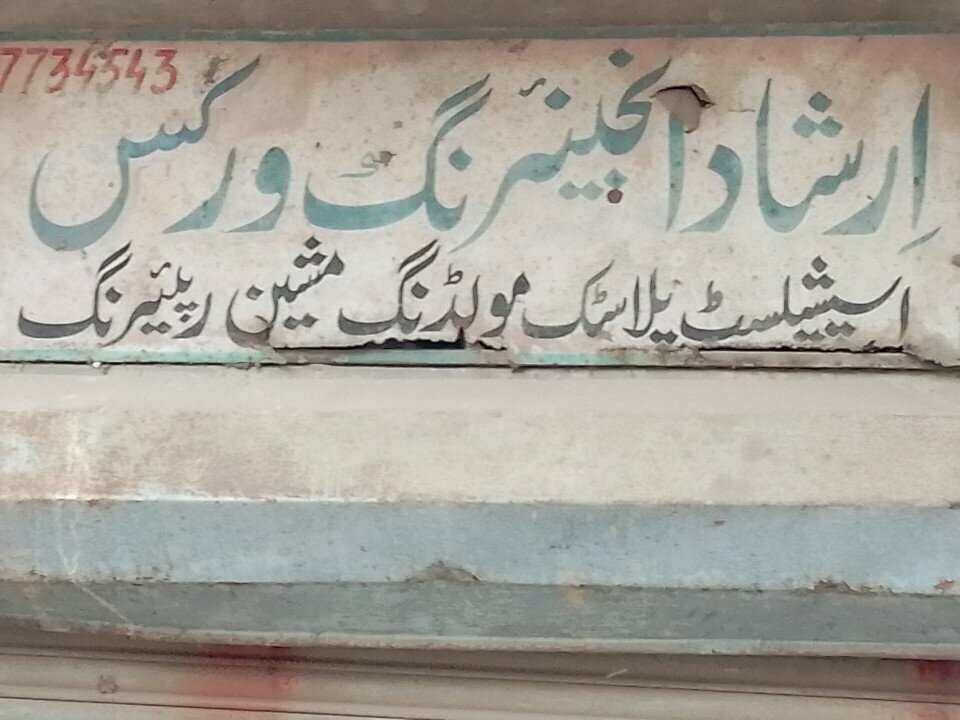 7734543
اِرشاد انجینئرنگ ورکس
اسپیشلسٹ پلاسٹک مولڈنگ مشین رپیئرنگ